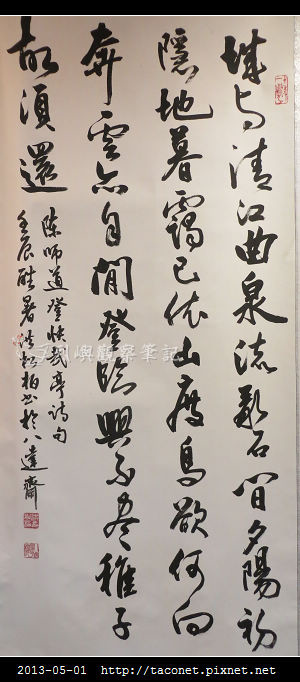 城与清江曲泉流亂石间夕陽初
隱地暮靄已依山度鳥欲何向
奔雲亦自閒登臨興不盡稚子
故須還
陳師道登快哉亭詩句
壬辰酷暑柏书於八達齋
嶼觀察筆記
2013-05-01 http://taconet.pixnet.net